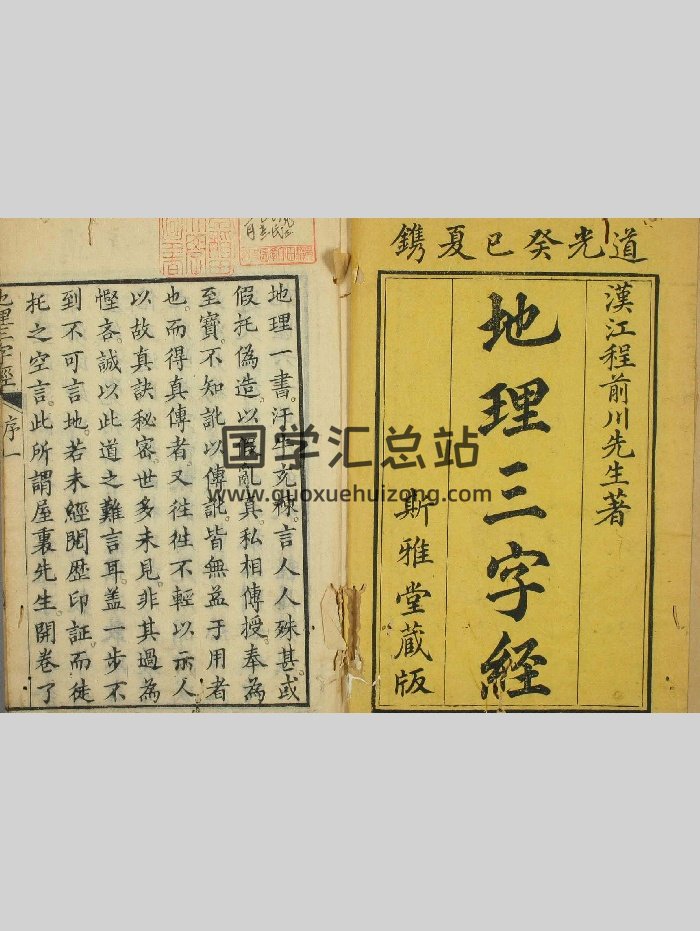 道光癸巳夏鐫
漢江程前川先生著
地理三字經
斯雅堂藏版
地理一書。汗牛充棟。言人人殊。甚或
假托偽造。以僞亂真。私相傳授。奉為
至寶。不知訛以傳訛。皆無益于用者
也。而得真傳者。又徃徃不輕以示人
以故真訣秘密。世多未見。非其過為
慳吝。誠以此道之難言耳。盖一步不
到不可言地。若未經閱歷印証。而徒
托之空言。此所謂屋裏先生。開卷了
地理三字經 序 一
国学汇总站
www.guoxuehuizong.com